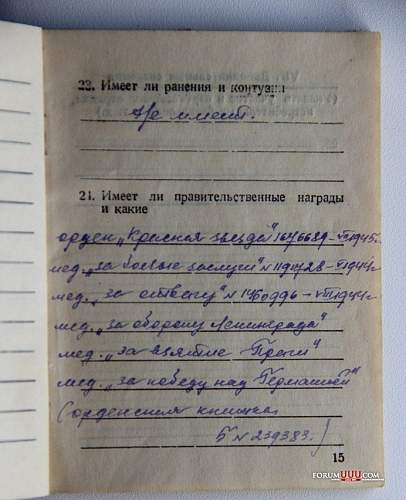 23. Имеет ли ранения и контузии
Не имеет.
24. Имеет ли правительственные награды
и какие
орден „Красная звезда" 1676689 - VII 1945г.
мед. „за боевые заслуги" № 1191728 - VI 1944г.
мед. „за отвагу" № 1460996 - VIII 1944г.
мед. „за оборону Ленинграда"
мед. „за взятие Праги"
мед. „за победу над Германией"
(орденская книжка
Б № 239383.)
15
FORUMUUU.COM